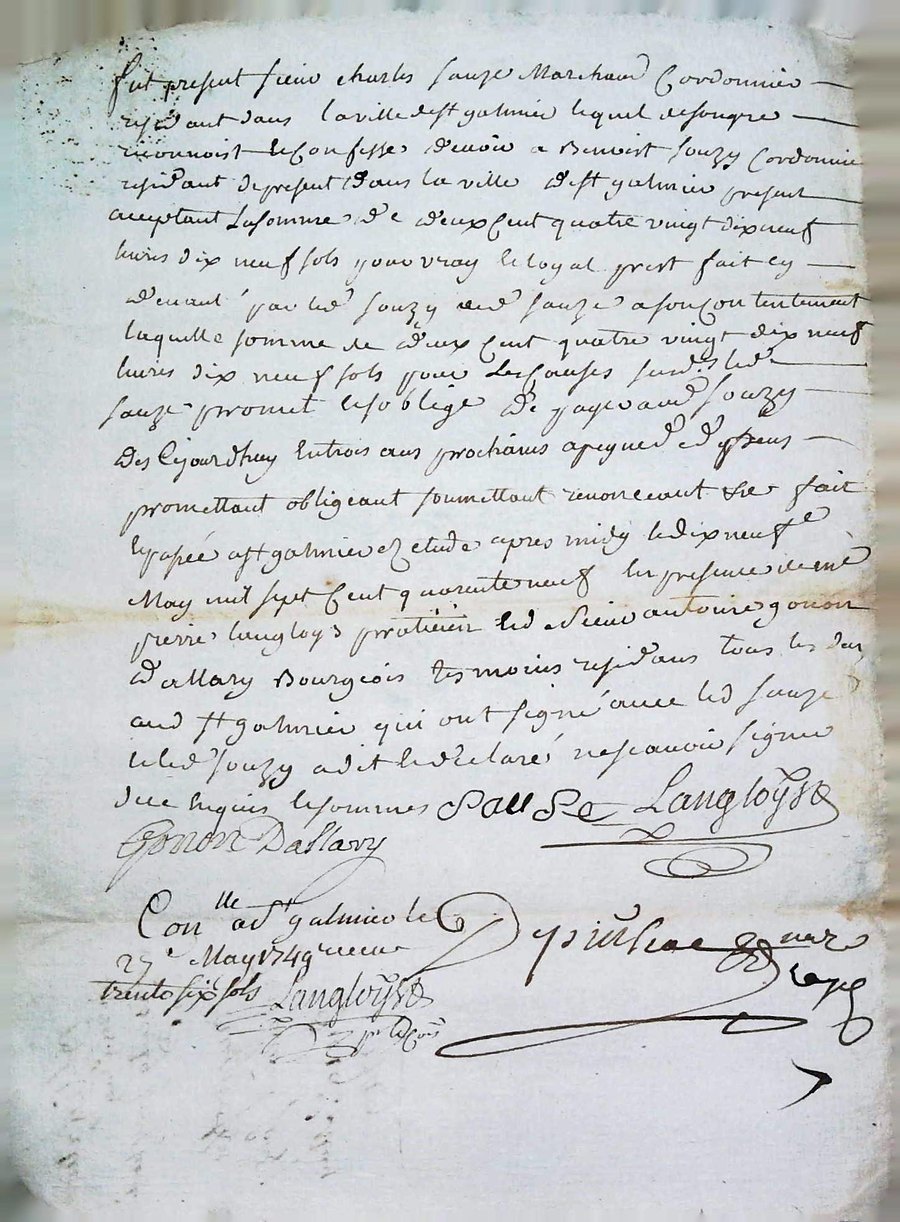 fut present sieur charles sauze Marchand Cordonnier
residant dans laville de st galmier lequel de son gre
reconnoist et confesse devoir a Benoist souzy Cordonnier
residant de present dans la ville de st galmier present
acceptant la somme de deux cent quatre vingt dix neuf
livres dix neuf sols pour vray et loyal prest fait cy
devant par led souzy aud sauze a son contentement
laquelle somme de deux cent quatre vingt dix neuf
livres dix neuf sols pour les causes susd led
sauze promet et soblige de payer aud souzy
des cejourdhuy en trois ans prochains a peyne de d
promettant obligeant soumettant renonceant &c fait
et passé a st galmier ez etude apres midy le dix neufe
May mil sept cent quarente neuf en presence de me
pierre langloys praticien et de sieur antoine gonon
dallary Bourgeois tesmoins residans tous les deux
aud st galmier qui ont signé avec led sauze
et led souzy a dit et declaré ne scavoir signer
de ce enquis et sommes Sause Langloys
Gonon Dallary
Conlle a st galmier le
27e May 1749 receu
trente six sols Langloys